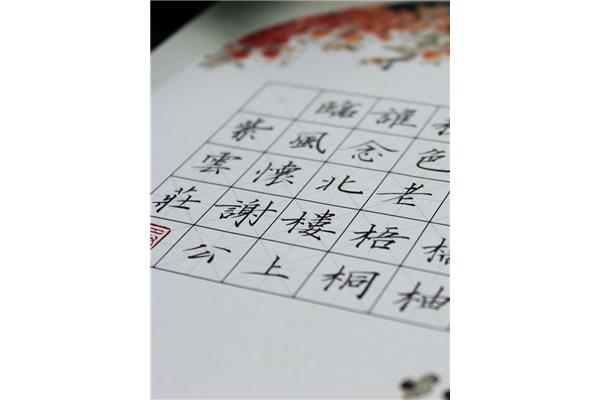 柚
色老梧桐
誰念北樓上
臨風懷謝公
紫雲莊